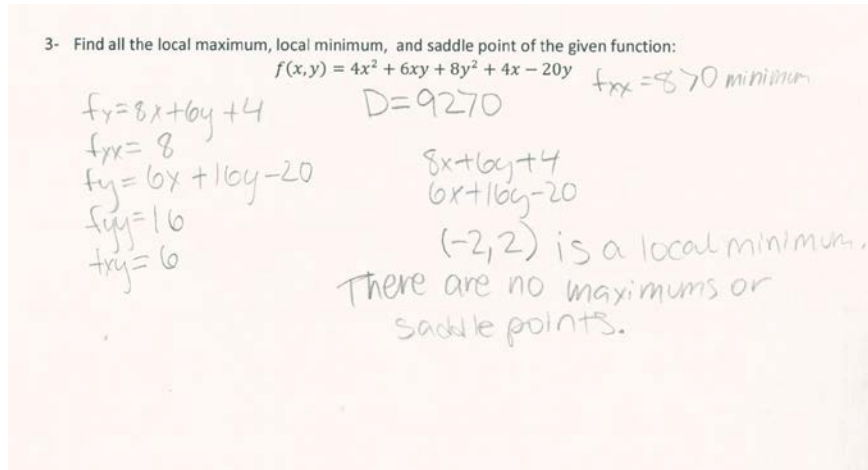 3- Find all the local maximum, local minimum, and saddle point of the given function:
f(x,y) = 4x² + 6xy + 8y² + 4x − 20y
fxx = 8 > 0 minimum
D = 9270
fx = 8x + 6y + 4
fxx = 8
fy = 6x + 16y - 20
fyy = 16
fxy = 6
8x + 6y + 4
6x + 16y - 20
(-2, 2) is a local minimum.
There are no maximums or
saddle points.